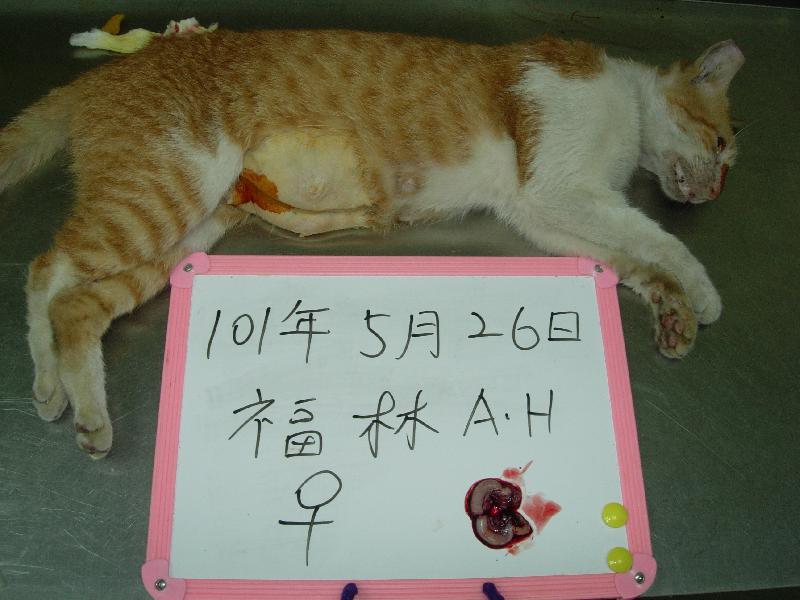 101年 5月 26日
福林 A.H
♀